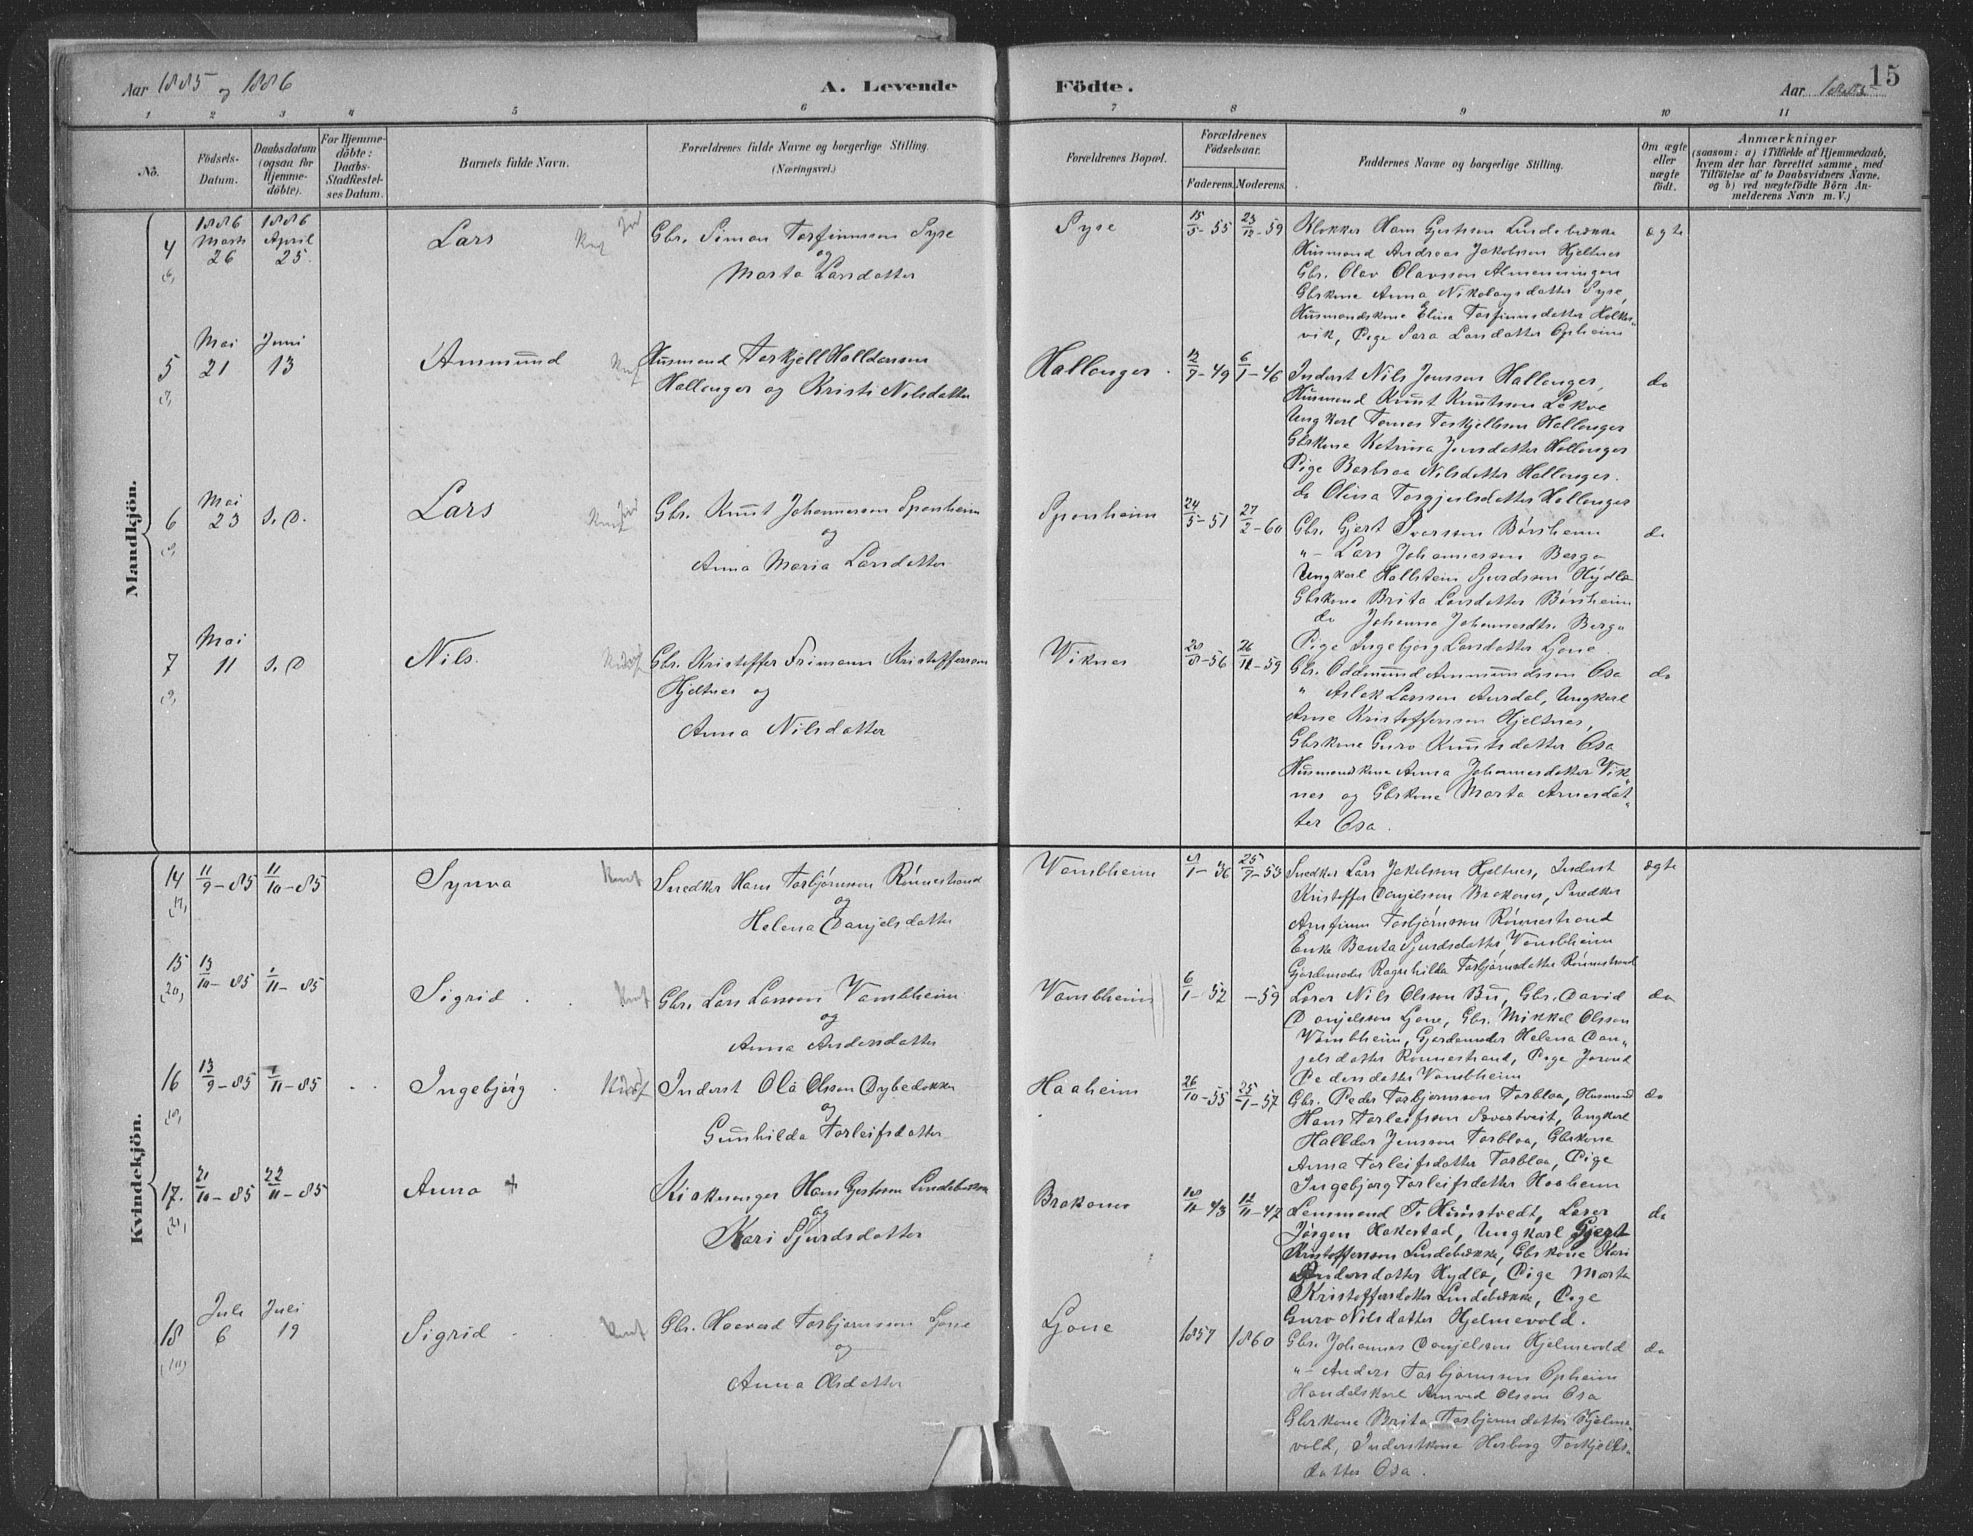 Aar 1885 og 1886
A. Levende
Födte.
Aar 1885
15
1 2 3 4 5 6 7 8 9 10 11
No.
Födsels-
Datum.
Daabsdatum
(ogsaa for
Hjemme-
döbte).
For Hjemme-
döbte:
Daabs
Stadfæstel-
ses Datum.
Barnets fulde Navn.
Forældrenes fulde Navne og borgerlige Stilling.
(Næringsvei.)
Forældrenes Bopæl.
Forældrenes
Födselsaar.
Faderens. Moderens.
Faddernes Navne og borgerlige Stilling.
Om ægte
eller
uægte
födt.
Anmærkninger
(saasom: a) i Tilfælde af Hjemmedaab,
hvem der har forrettet samme, med
Tilföielse af to Daabsvidners Navne,
og b) ved uægtefödte Börn An-
melderens Navn m. V.)
Mandkjön.
4
1886 Marts 26
1886 April 25.
Lars
Gbr. Simon Torfinnsson Syse
og
Marta Larsdatter
Syse
15/5-55 23/12-59
Klokker Hans Gjertsson Lindebrekke
Husmand Andreas Jakobsson Hjeltnes
Gbr. Olav Olavsson Almenningen
Gbrkone Anna Nikolaysdatter Syse,
Husmandskone Elina Torfinnsdatter Holkes-
vik, Pige Sara Larsdatter Opheim
ægte
5
Mai 21
Juni 13
Ammund
Husmand Torkjell Halldorsson
Hallanger og Kristi Nilsdatter
Hallanger.
12/7-49 6/1-46
Inderst Nils Jonsson Hallanger,
Husmand Knut Knutsson Lekve
Ungkarl Tomas Torkjellsson Hallanger
Gbrkone Katrina Jonsdatter Hallanger
Pige Barbraa Nilsdatter Hallanger.
do Olina Torgjilsdatter Hallanger
do
6
Mai 23
S. D.
Lars
Gbr. Knut Johannesson Sponheim
og
Anna Maria Larsdatter
Sponheim
24/5-51 27/2-60
Gbr. Gjert Ivarsson Børsheim
"- Lars Johannesson Berge
Ungkarl Hallstein Sjurdsson Hydle
Gbrkone Brita Larsdatter Børsheim
do Johanna Johannesdtr Berge
Pige Ingebjørg Larsdatter Ljone.
do
7
Mai 11
S. D
Nils.
Gbr. Kristoffer Frimann Kristoffersson
Hjeltnes og
Anna Nilsdatter
Viknes
20/8-56 26/11-59
Gbr. Oddmund Ammundsson Osa
" Aslak Larsson Aurdal, Ungkarl
Arne Kristoffersson Hjeltnes,
Gbrkone Guro Knutsdatter Osa
Husmandskone Anna Johannesdatter Vik-
nes og Gbrkone Marta Arnesdat-
ter Osa.
do
Kvindekjön.
14
11/9-85 11/10-85
Synva
Snedker Hans Torbjørnsson Rønnestrand
og
Helena Danjelsdatter
Vambheim
8/1-36 25/7-53
Snedker Lars Jakobsson Hjeltnes, Inderst
Kristoffer Danjelsson Brakanes, Snedker
Arnfinn Torbjørnsson Rønnestrand
Enke Benta Sjurdsdatter Vambheim
Gjordemoder Ragnhilda Torbjørnsdatter Rønnestrand
ægte
15
(20)
13/10-85 1/11-85
Sigrid
Gbr. Lars Larsson Vambheim
og
Anna Andersdatter
Vambheim
6/1-52 -59
Lærer Nils Olsson Bu, Gbr. David
Danjelsson Ljone, Gbr. Mikkel Olsson
Vambheim, Gjordemoder Helena Dan-
jelsdatter Rønnestrand, Pige Jorond
Pedersdatter Vambheim
do
16
13/9-85 1/11-85
Ingebjørg
Inderst Ola Olsson Dybedokken
og
Gunhilda Torleifsdatter
Haaheim
26/10-55 25/1-57
Gbr. Peder Torbjørnsson Torbloa, Husmand
Hans Torleifsson Svartveit, Ungkarl
Halldor Jonsson Torbloa, Gbrkone
Anna Torleifsdatter Torbloa, Pige
Ingebjørg Torleifsdatter Haaheim
do
17.
(21)
21/10-85 22/11-85
Anna +
Kirkesanger Hans Gjertsson Lindebrekke
og
Kari Sjurdsdatter
Brakanes
18/11-43 12/11-47
Lensmand T. Hunstvedt, Lærer
Jørgen Hakestad, Ungkarl Gjert
Kristoffersson Lindebrekke, Gbrkone Kari
Andersdatter Hydle, Pige Marta
Kristoffersdatter Lindebrekke, Pige
Guro Nilsdatter Hjelmevold.
do
18
Juli 6
Juli 19
Sigrid
Gbr. Haavard Torbjørnsson Ljone
og
Anna Olsdatter
Ljone
1857 1860
Gbr. Johannes Danjelsson Hjelmevold
"- Anders Torbjørnsson Opheim
Handelskarl Amund Olsson Osa
Gbrkone Brita Torbjørnsdatter Hjelme-
vold, Inderstkone Herborg Torkjells-
datter Osa.
do